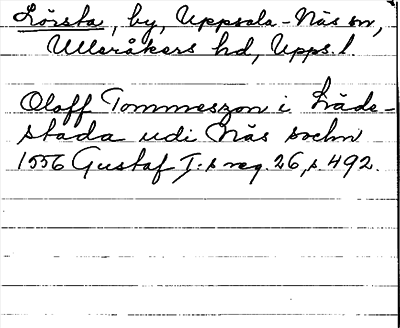 Lörsta, by, Uppsala-Näs sn,
Ulleråkers hd, Upps. l.
Oloff Tommeszon i Läde-
stada udi Näs sochn
1556 Gustaf I:s reg. 26, s. 492.